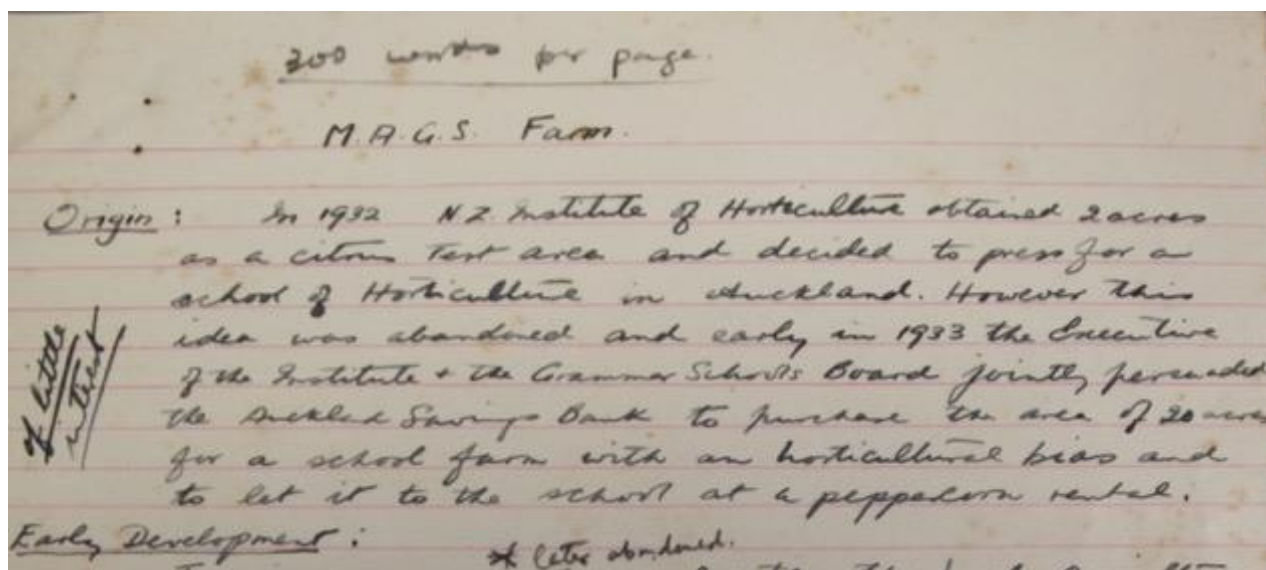 300 words per page.
M.A.G.S. Farm.
Origin: In 1932 NZ. Institute of Horticulture obtained 2 acres
as a citrus test area and decided to press for a
school of Horticulture in Auckland. However this
idea was abandoned and early in 1933 the Executive
of the Institute + the Grammar Schools Board jointly persuaded
the Auckland Savings Bank to purchase the area of 20 acres
for a school farm with an horticultural bias and
to let it to the school at a peppercorn rental.
of little
interest
Early Development:
* later abandoned.